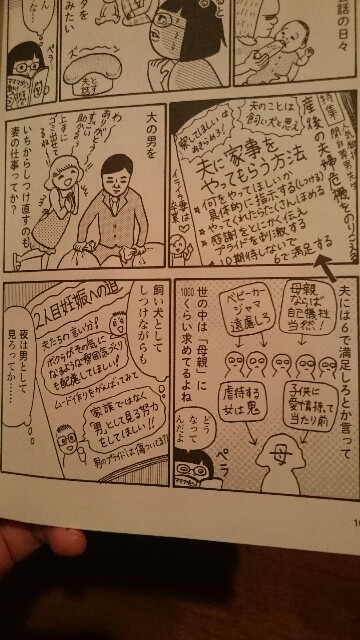 話の日々
タを
みたい
夫と
娘
ペラ
特集
産後の夫婦危機をのりこえる
夫のことは
飼い犬と思え
察してほしいは
あきらめろ!
夫に家事を
やってもらう方法
何をやってほしいか
具体的に指示する(しつける)
やってくれたらたくさんほめる
感謝をとにかく伝え
プライドを刺激する
10期待しないで
6で満足する
イライラ
卒業♡
大の男を
わー
ありがとう
すっごい
助かるー!
上手に
ゴミ出せて
いちからしつけ直すのも
妻の仕事ってか?
夫には6で満足しろとか言って
母親
ならば
自己犠牲
当然!
ベビーカー
ジャマ
遠慮しろ
子供に
愛情持って
当たり前
虐待する
女は鬼
母
世の中は「母親」に
1000くらい求めてるよね
どう
なって
んだよ
ペラ
飼い犬として
しつけながらも
2人目妊娠への道
夫たちの言い分!
ボクらがその気に
なるような雰囲気づくり
も配慮してほしい!
ムード作りをがんばってみて
家族ではなく
「男」として見る努力
をしてほしい!!
男のプライドは傷ついてる!!
夜は男として
見ろってか……